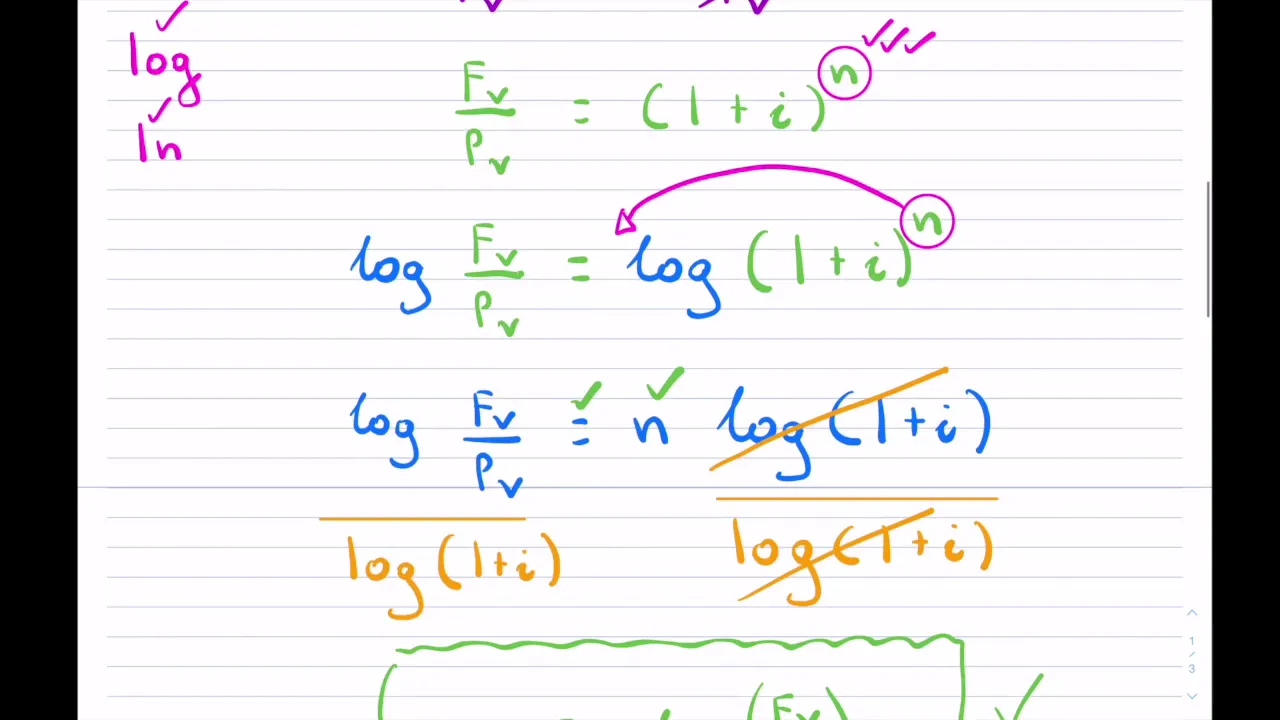 log
ln
Fv/Pv = (1 + i)^n
log Fv/Pv = log (1 + i)^n
log Fv/Pv = n log (1 + i)
log (1 + i) log (1 + i)
(Fv)
1
/
3